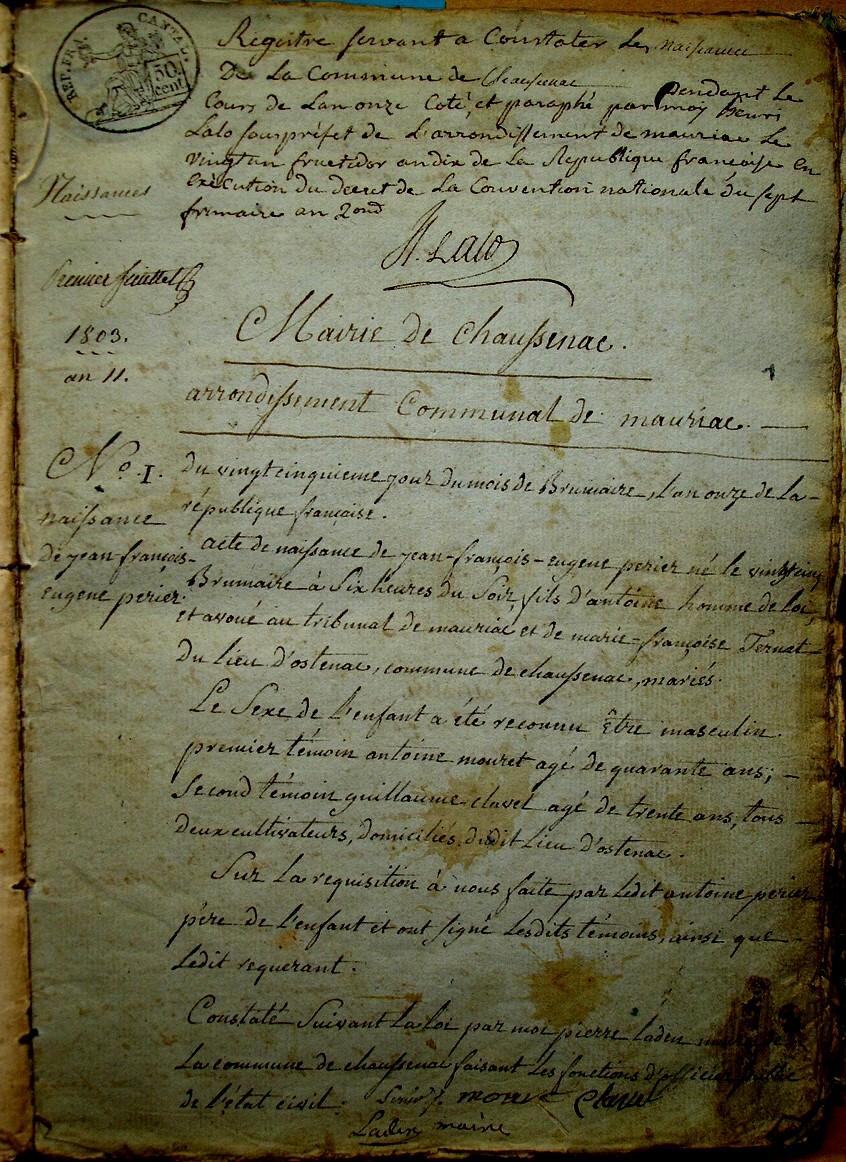 REP. FRA. CANTAL.
50 cent
Registre servant a Constater les naissances
De La Commune de Chaussenac pendant le
Cours de Lan onze Coté, et paraphé par moy henri
Lalo souspréfet de L'arrondissement de mauriac Le
vingt un fructidor an dix de La Republique francoise en
execution du decret de La Convention nationale du sept
frimaire an 2ond
Naissances
H. Lalo
Premier feuillet
1803.
an 11.
Mairie de chaussenac.
arrondissement Communal de mauriac.
No. 1.
naissance
de jean françois-
eugene perier.
Du vingtcinquieme jour du mois de Brumaire, l'an onze de la-
république française.
acte de naissance de jean-françois-eugene perier né le vingtcinq
Brumaire à Six heures du Soir, fils d'antoine homme de loi,
et avoué au tribunal de mauriac et de marie-françoise Ternat-
du lieu d'ostenac, commune de chaussenac, mariés.
Le Sexe de l'enfant a été reconnu Être masculin.
premier témoin antoine mouret agé de quarante ans; -
Second témoin guillaume clavel agé de trente ans, tous -
deux cultivateurs, domiciliés dudit Lieu d'ostenac.
Sur La requisition à nous faite par ledit antoine perier
père de l'enfant et ont signé lesdits témoins, ainsi que
ledit requerant.
Constaté Suivant La loi par moi pierre laden maire de
La commune de chaussenac faisant Les fonctions d'officier public
de l'état civil. mouret Clavel
Laden maire